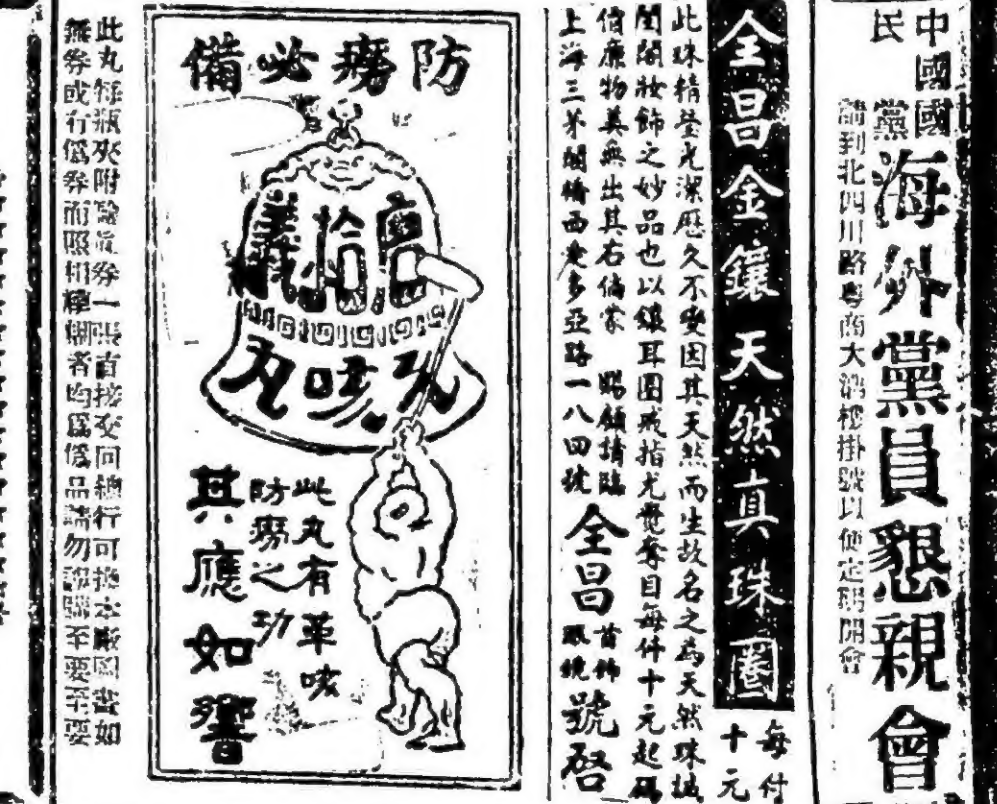 中國國
民黨
海外黨員懇親會
請到北四川路粵商大酒樓掛號以便定期開會
全昌金鑲天然真珠圈
每付
十元
此珠精瑩光潔歷久不變因其天然而生故名之為天然珠誠
閨閣妝飾之妙品也以鑲耳圈戒指尤覺奪目每件十元起碼
價廉物美無出其右倘蒙 賜顧請臨
上海三茅閣橋西愛多亞路一八四號
全昌首飾眼鏡號啓
防癆必備
唐拾義
久咳丸
此丸有革咳
防癆之功
其應如響
此丸每瓶夾附驗真券一張直接交回總行可換本廠圖畫如
無券或有僞券而照相糢糊者均爲僞品請勿誤購至要至要